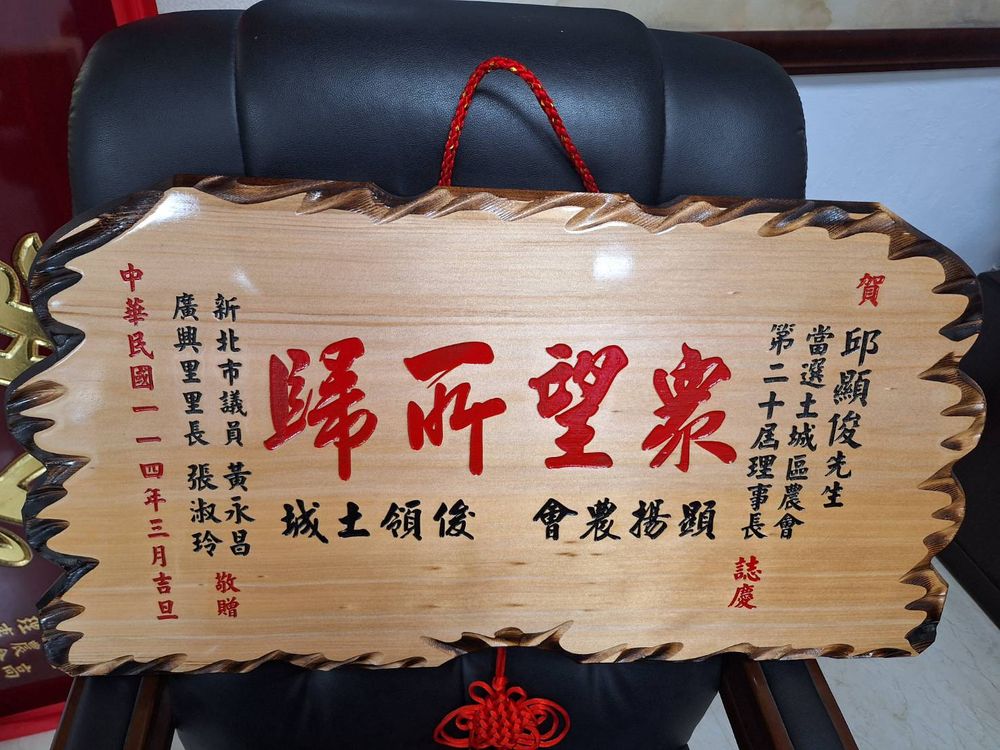 賀
邱顯俊先生
當選土城區農會
第二十屆理事長
誌慶
眾望所歸
顯揚農會 俊領土城
新北市議員 黃永昌
廣興里里長 張淑玲
敬贈
中華民國一一四年三月吉旦